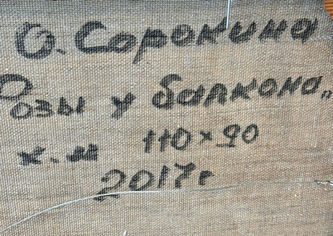 О. Сорокина
Розы у балкона"
х.м 110×90
2017г